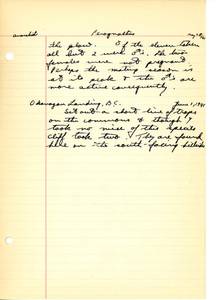 Perognathus
the place. Of the eleven taken
all but 2 were ♂s. The two
females were not pregnant.
Perhaps the mating season is
at its peak & the ♂s are
more active consequently.
Okanagan Landing, B.C. June 1, 1941
Set out a short line of traps
on the commons & though I
took no mice of this species
Cliff took two. They are found
here on the south-facing hillsides